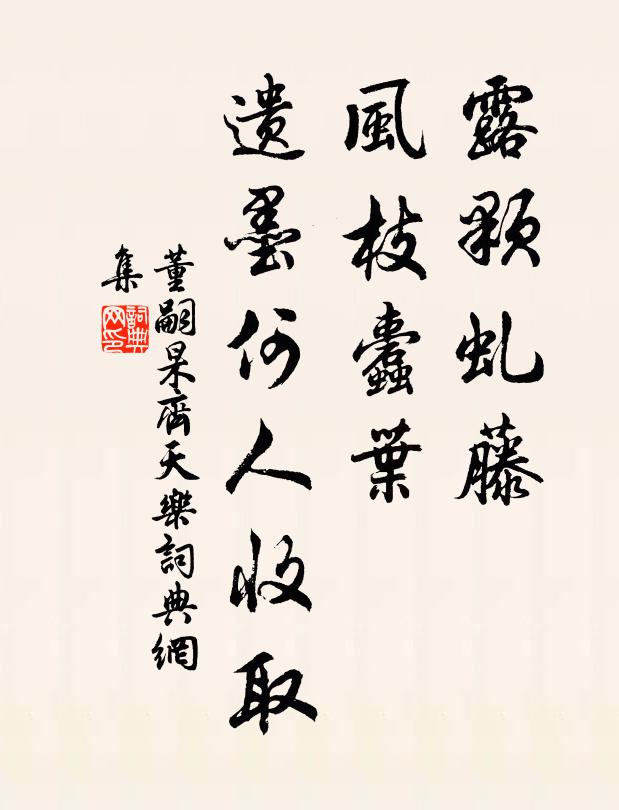 露顆虬藤
風枝蠹葉
遺墨何人收取
董嗣杲齊天樂詞典網
集
詞典
网印